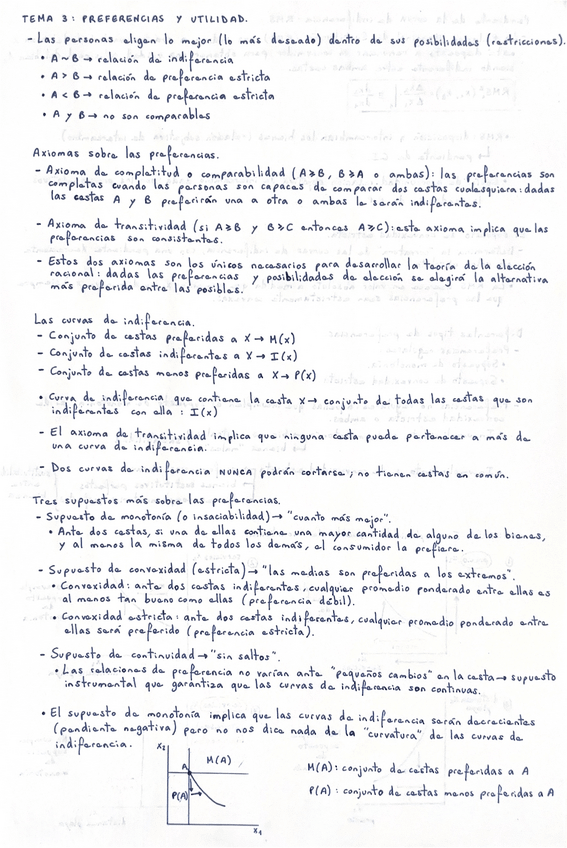 TEMA 3: PREFERENCIAS Y UTILIDAD.
- Las personas eligen lo mejor (lo más deseado) dentro de sus posibilidades (restricciones).
• A ~ B → relación de indiferencia
• A > B → relación de preferencia estricta
• A < B → relación de preferencia estricta
• A y B → no son comparables
Axiomas sobre las preferencias.
- Axioma de completitud o comparabilidad (A ≽ B, B ≽ A o ambas): las preferencias son
completas cuando las personas son capaces de comparar dos cestas cualesquiera: dadas
las cestas A y B preferirán una a otra o ambas le serán indiferentes.
- Axioma de transitividad (si A ≽ B y B ≽ C entonces A ≽ C): este axioma implica que las
preferencias son consistentes.
- Estos dos axiomas son los únicos necesarios para desarrollar la teoría de la elección
racional: dadas las preferencias y posibilidades de elección se elegirá la alternativa
más preferida entre las posibles.
Las curvas de indiferencia.
- Conjunto de cestas preferidas a X → M(x)
- Conjunto de cestas indiferentes a X → I(x)
- Conjunto de cestas menos preferidas a X → P(x)
• Curva de indiferencia que contiene la cesta X → conjunto de todas las cestas que son
indiferentes con ella : I(x)
- El axioma de transitividad implica que ninguna cesta puede pertenecer a más de
una curva de indiferencia.
- Dos curvas de indiferencia NUNCA podrán cortarse, no tienen cestas en común.
Tres supuestos más sobre las preferencias.
- Supuesto de monotonía (o insaciabilidad) → "cuanto más mejor".
• Ante dos cestas, si una de ellas contiene una mayor cantidad de alguno de los bienes,
y al menos la misma de todos los demás, el consumidor la prefiere.
- Supuesto de convexidad (estricta) → "las medias son preferidas a los extremos".
• Convexidad: ante dos cestas indiferentes, cualquier promedio ponderado entre ellas es
al menos tan bueno como ellas (preferencia débil).
• Convexidad estricta: ante dos cestas indiferentes, cualquier promedio ponderado entre
ellas será preferido (preferencia estricta).
- Supuesto de continuidad → "sin saltos".
• Las relaciones de preferencia no varían ante "pequeños cambios" en la cesta → supuesto
instrumental que garantiza que las curvas de indiferencia son continuas.
• El supuesto de monotonía implica que las curvas de indiferencia serán decrecientes
(pendiente negativa) pero no nos dice nada de la "curvatura" de las curvas de
indiferencia.
x₂
A
M(A)
P(A)
x₁
M(A): conjunto de cestas preferidas a A
P(A): conjunto de cestas menos preferidas a A